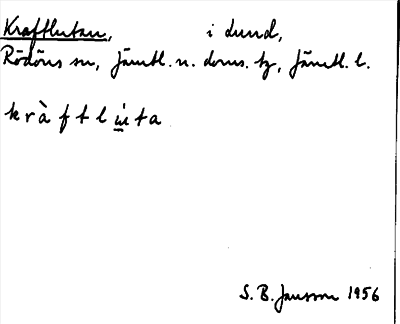 Kraftlutan, i Lund,
Rödöns sn, Jämtl. n. doms. tg, Jämtl. l.
kràftlu̱̇ta
S. B. Jansson 1956